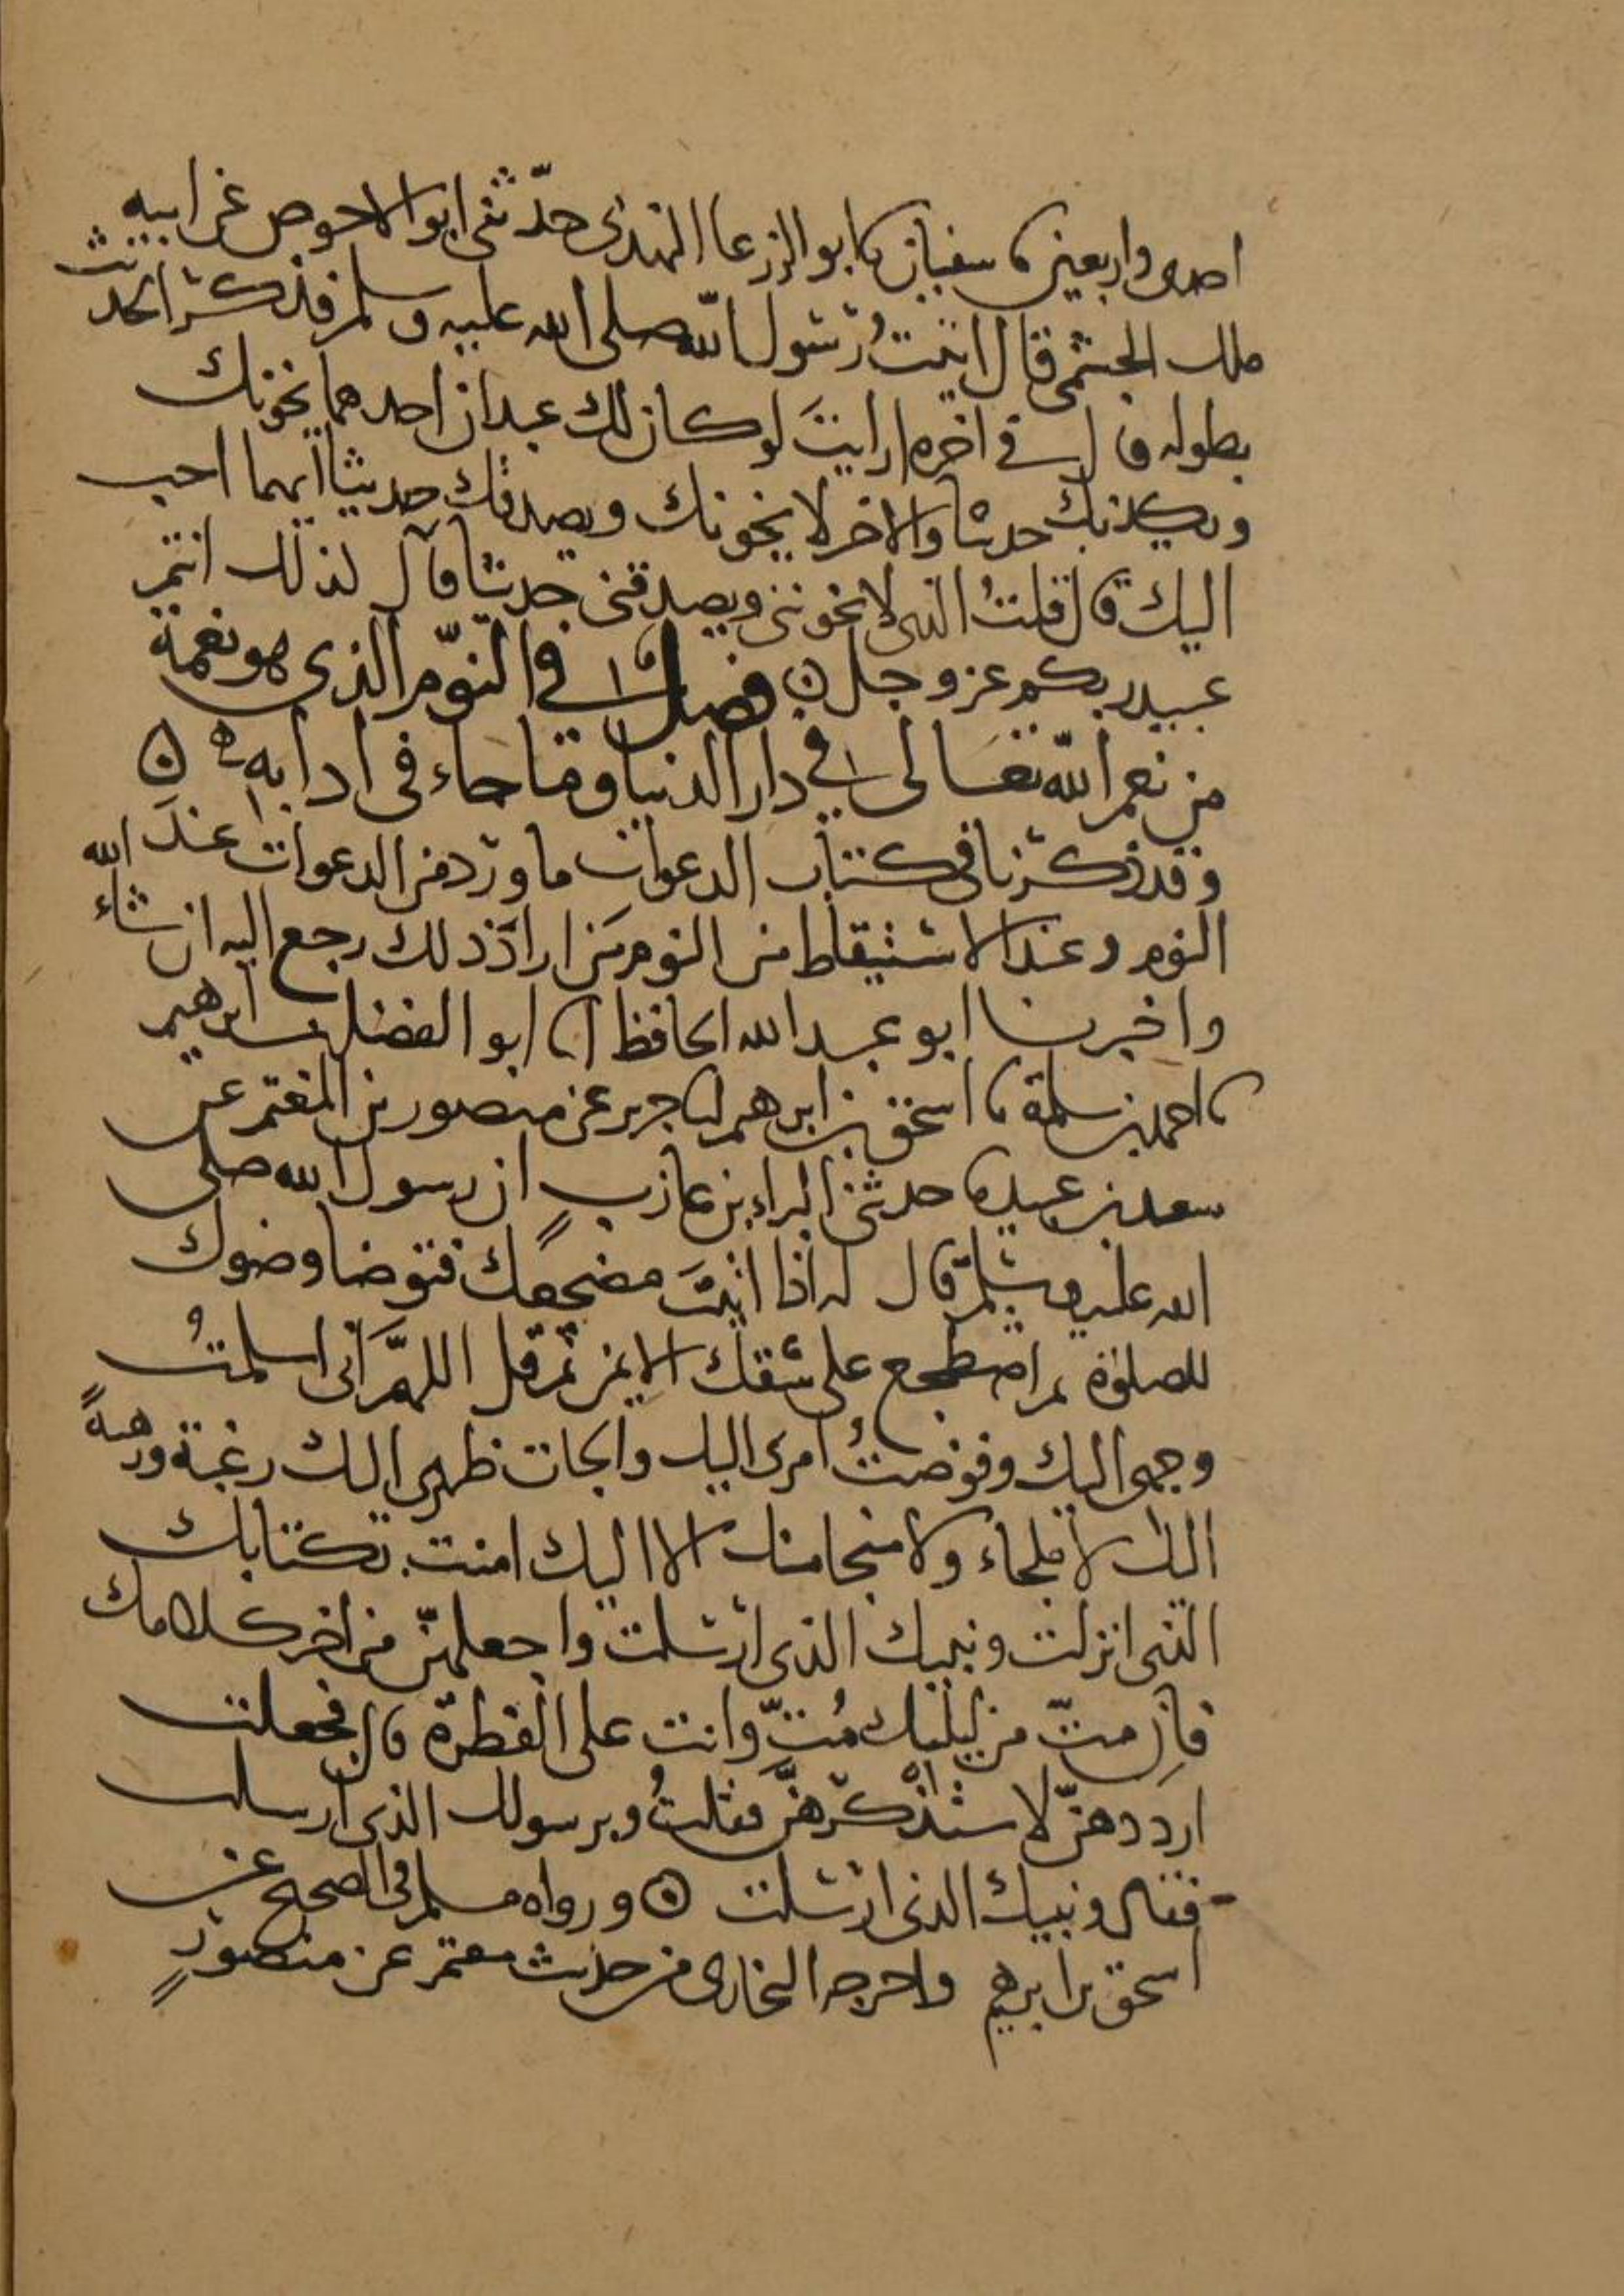 احدى واربعين نا سفيان نا ابو الزعرا النهدى حدّثنى ابو الاحوص عن ابيه
ملك الجشمى قال اتيتُ رسول الله صلى الله عليه وسلم فذكر الحديث
بطوله قال فى اخره ارايتَ لو كان لك عبدان احدهما يخونك
ويكذبك حديثا والاخر لا يخونك ويصدقك حديثا ايهما احب
اليك قال قلتُ الذى لا يخوننى ويصدقنى حديثا قال كذلك انتم
عبيد ربكم عز وجل ۞ فصل فى النوّم الذى هو نعمة
من نعم الله تعالى فى دار الدنيا وما جاء فى ادابه ۞
وقد ذكرنا فى كتاب الدعوات ما ورد من الدعوات عندَ
النوم وعند الاستيقاط من النوم من ارادَ ذلك رجع اليه ان شاء الله
واخبرنا ابو عبد الله الحافظ انا ابو الفضل بن ابرهيم
نا احمد بن سلمة نا اسحق بن ابرهيم انا جرير عن منصور بن المعتمر عن
سعد بن عبيدة حدثنى البراء بن عازبٍ ان رسول الله صلى
الله عليه وسلم قال له اذا اتيتَ مضجعك فتوضا وضوك
للصلوة ثم اضطجع على شقك الايمن ثم قل اللهمَّ انى اسلمتُ
وجهى اليك وفوضتُ امرى اليك والجات ظهرى اليك رغبة ورهبةً
اليك لا ملجاء ولا منجا منك الا اليك امنت بكتابك
الذى انزلت ونبيك الذى ارسلت واجعلهنّ من اخر كلامك
فاِن متّ من ليلتك مُتَّ وانت على الفطرة قال فجعلت
ارددهنّ لاستذكرهنَّ فقلتُ وبرسولك الذى ارسلت
فقال ونبيك الذى ارسلت ۞ ورواه مسلم فى الصحيح عن
اسحق بن ابرهيم واخرجه البخارى من حديث معتمر عن منصورٍ